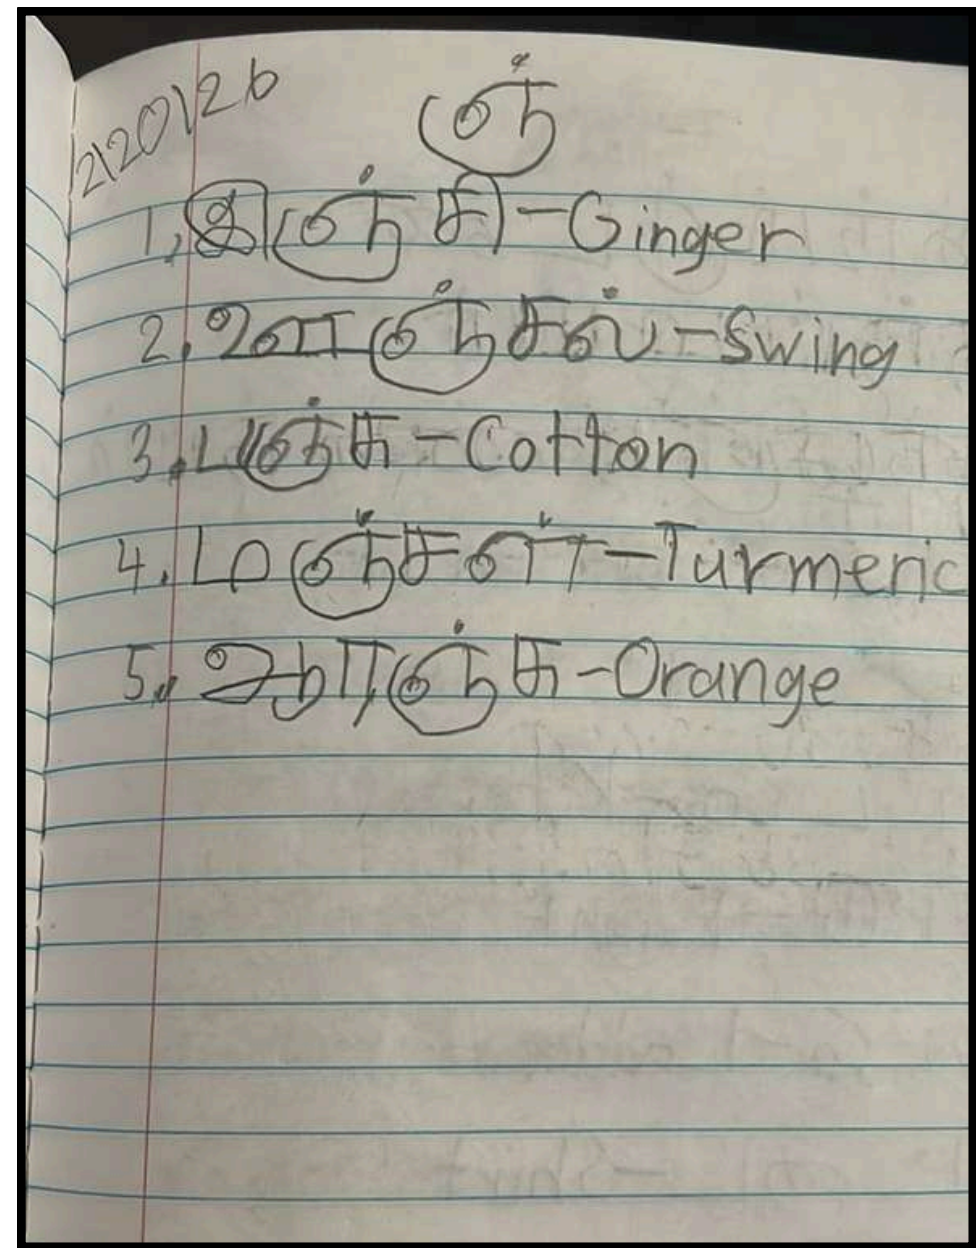 2/20/26
ஞ்
1. இஞ்சி - Ginger
2. ஊஞ்சல் - Swing
3. பஞ்சு - Cotton
4. மஞ்சள் - Turmeric
5. ஆரஞ்சு - Orange